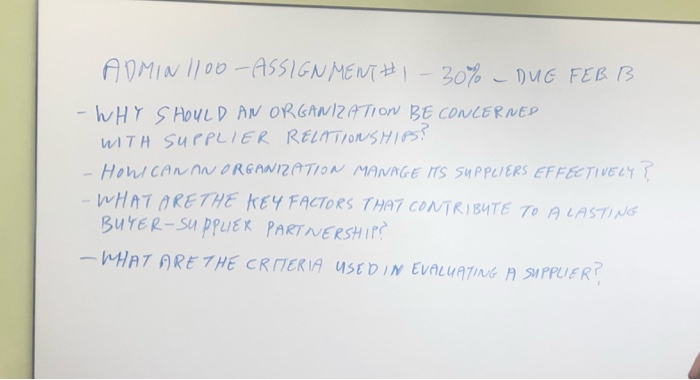 ADMIN 1100 - ASSIGNMENT #1 - 30% - DUE FEB 13
- WHY SHOULD AN ORGANIZATION BE CONCERNED
WITH SUPPLIER RELATIONSHIPS?
- HOW CAN AN ORGANIZATION MANAGE ITS SUPPLIERS EFFECTIVELY?
- WHAT ARE THE KEY FACTORS THAT CONTRIBUTE TO A LASTING
BUYER-SUPPLIER PARTNERSHIP?
- WHAT ARE THE CRITERIA USED IN EVALUATING A SUPPLIER?